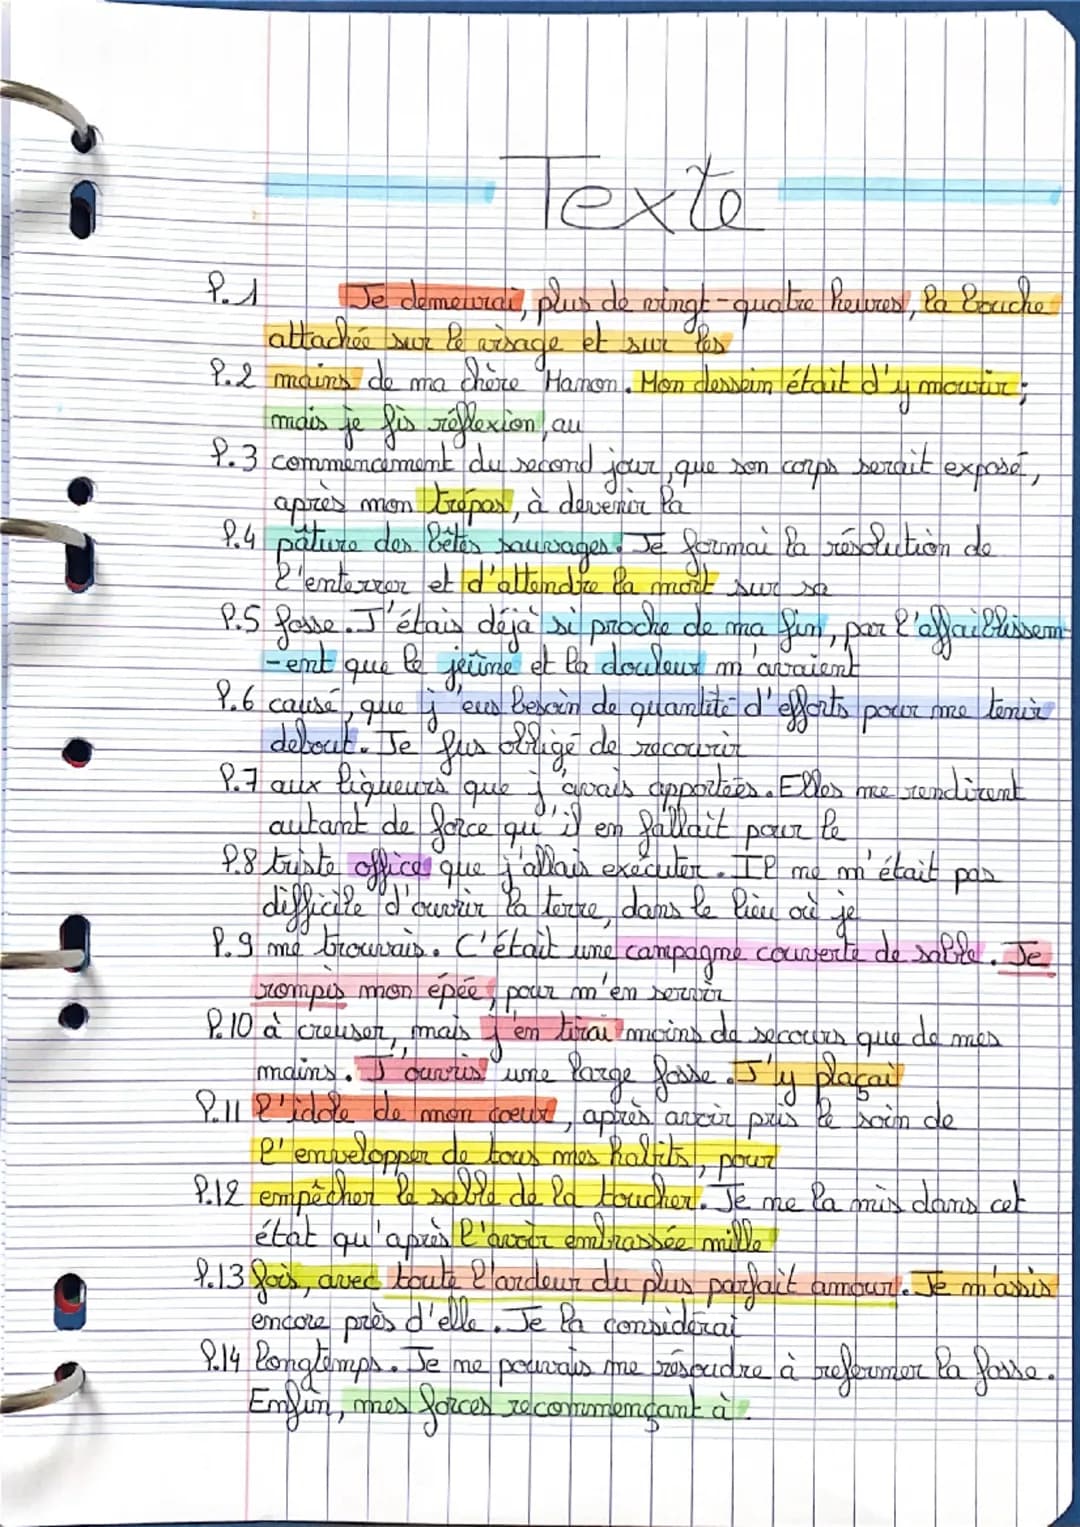 Texte
P.1 Je demeurai, plus de vingt-quatre heures, la bouche
attachée sur le visage et sur les
P.2 mains de ma chère Manon. Mon dessein était d'y mourir ;
mais je fis réflexion, au
P.3 commencement du second jour, que son corps serait exposé,
après mon trépas, à devenir la
P.4 pâture des bêtes sauvages. Je formai la résolution de
l'enterrer et d'attendre la mort sur sa
P.5 fosse. J'étais déjà si proche de ma fin, par l'affaiblissem-
-ent que le jeûne et la douleur m'avaient
P.6 causé, que j'eus besoin de quantité d'efforts pour me tenir
debout. Je fus obligé de recourir
P.7 aux liqueurs que j'avais apportées. Elles me rendirent
autant de force qu'il en fallait pour le
P.8 triste office que j'allais exécuter. Il ne m'était pas
difficile d'ouvrir la terre, dans le lieu où je
P.9 me trouvais. C'était une campagne couverte de sable. Je
rompis mon épée, pour m'en servir
P.10 à creuser, mais j'en tirai moins de secours que de mes
mains. J'ouvris une large fosse. J'y plaçai
P.11 l'idole de mon coeur, après avoir pris le soin de
l'envelopper de tous mes habits, pour
P.12 empêcher le sable de la toucher. Je ne la mis dans cet
état qu'après l'avoir embrassée mille
P.13 fois, avec toute l'ardeur du plus parfait amour. Je m'assis
encore près d'elle. Je la considérai
P.14 longtemps. Je ne pouvais me résoudre à refermer la fosse.
Enfin, mes forces recommençant à